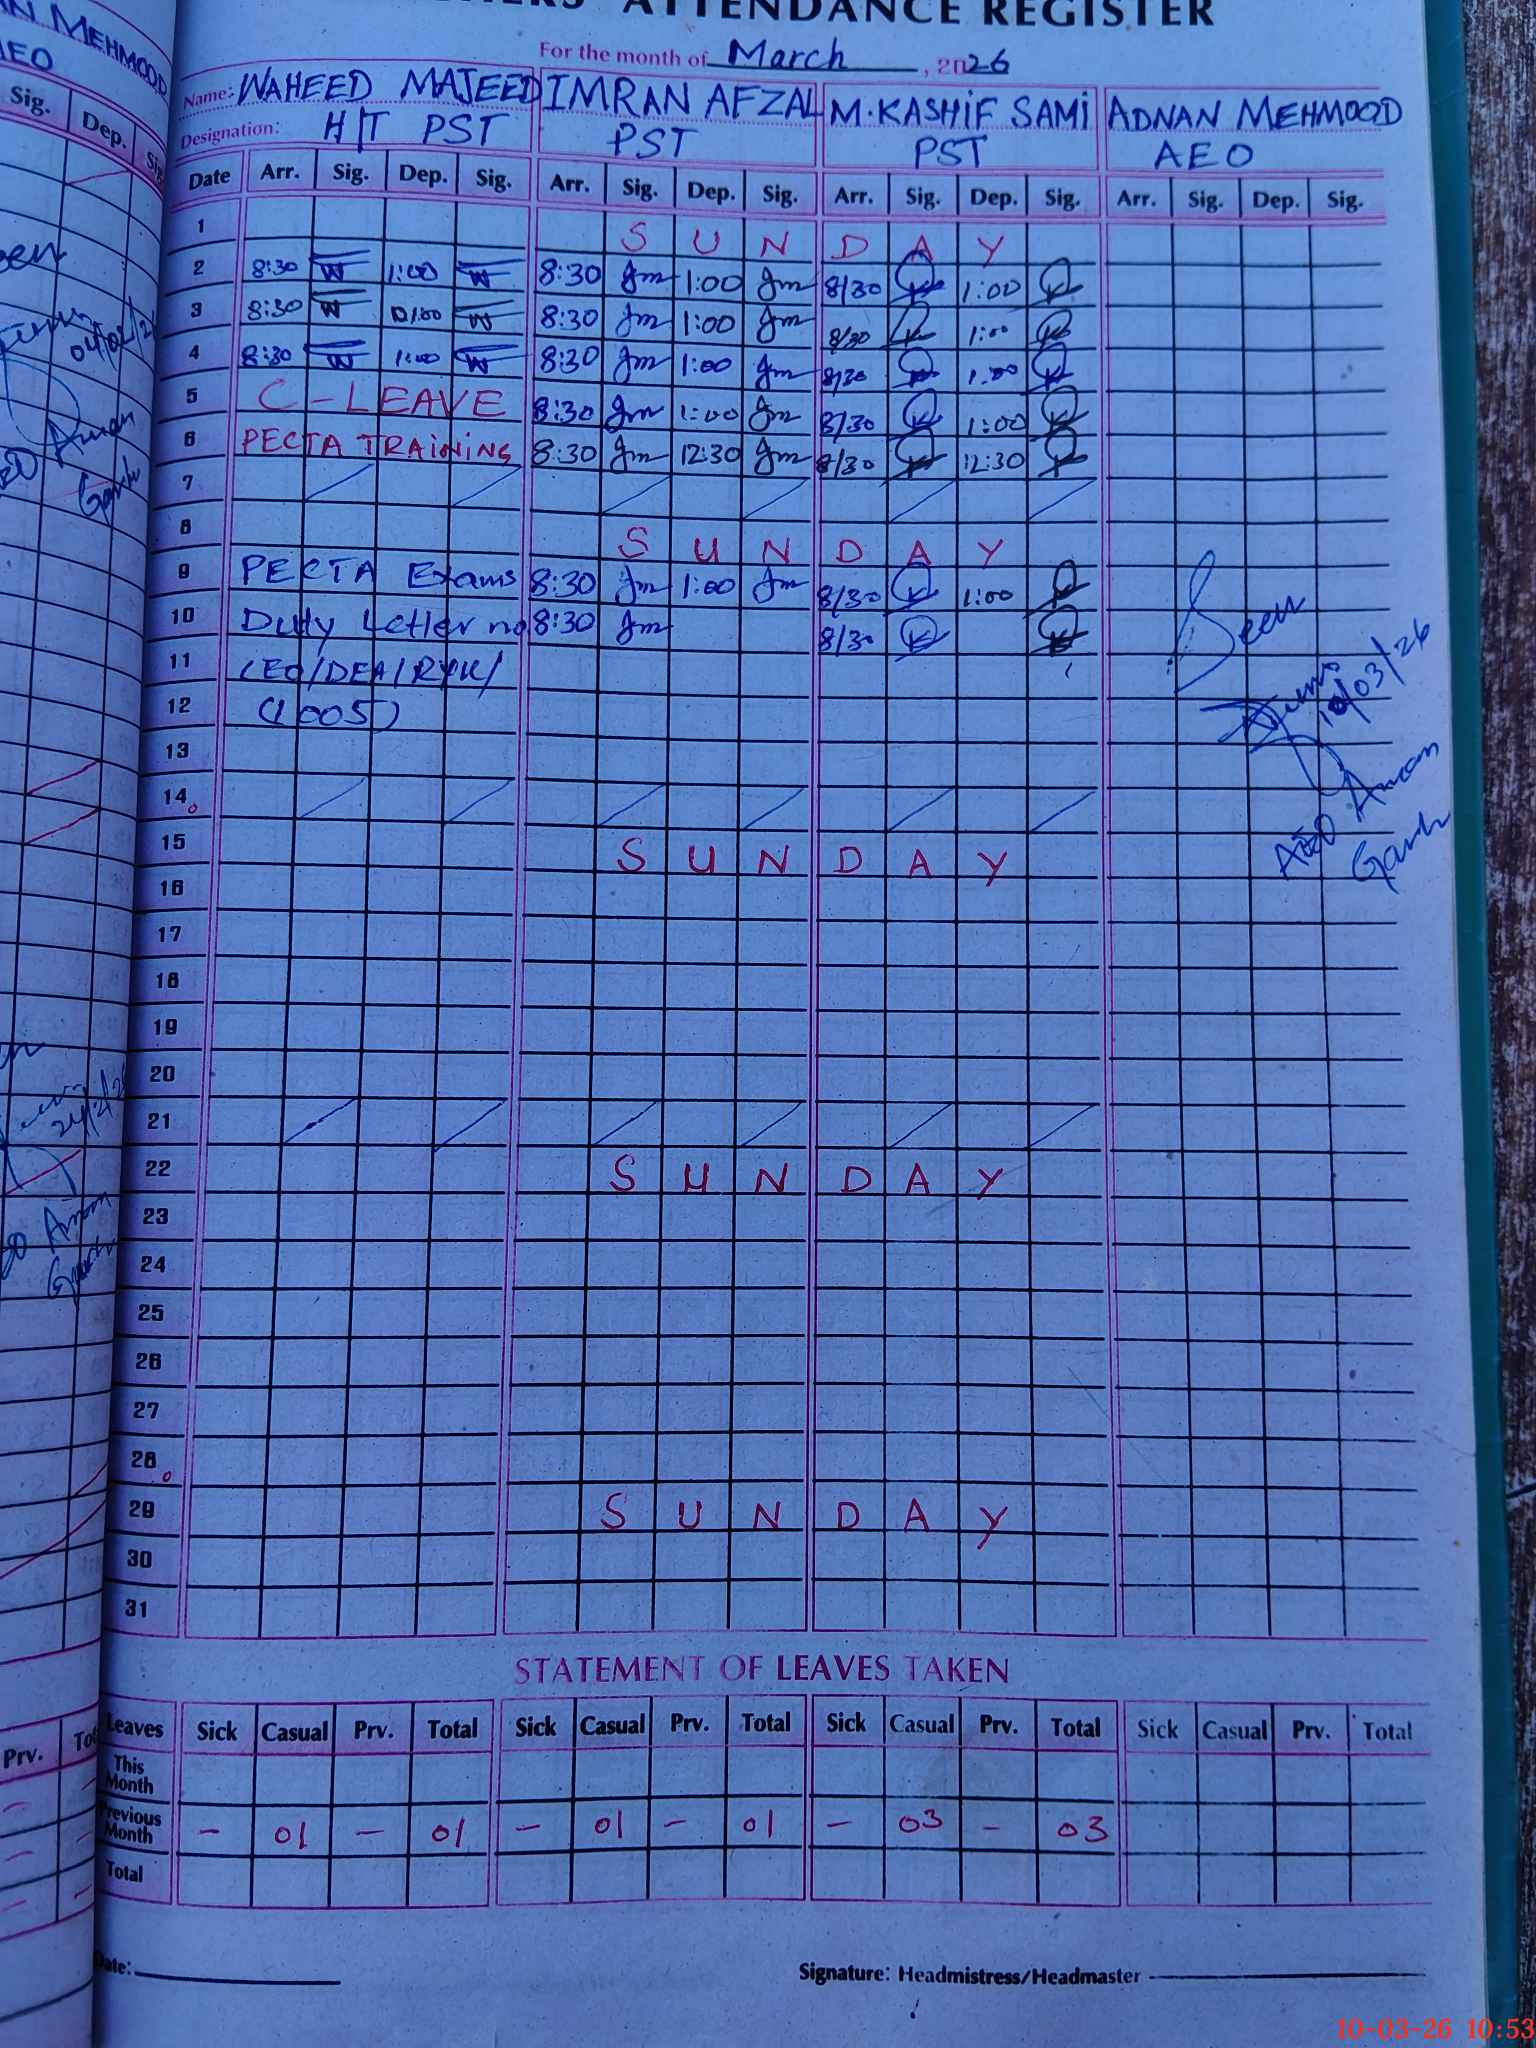 ATTENDANCE REGISTER
For the month of March, 2026
Name: WAHEED MAJEED IMRAN AFZAL M.KASHIF SAMI ADNAN MEHMOOD
Designation: H/T PST PST PST AEO
Date Arr. Sig. Dep. Sig. Arr. Sig. Dep. Sig. Arr. Sig. Dep. Sig. Arr. Sig. Dep. Sig.
1 SUNDAY
2 8:30 W 1:00 W 8:30 1:00 8/30 1:00
3 8:30 W 1:00 W 8:30 1:00 8/30 1:00
4 8:30 W 1:00 W 8:30 1:00 8/30 1:00
5 C-LEAVE 8:30 1:00 8/30 1:00
6 PECTA TRAINING 8:30 12:30 8/30 12:30
7
8 SUNDAY
9 PECTA Exams 8:30 1:00 8/30 1:00
10 Duty Letter no 8:30 8/30
11 CEO/DEA/RYK/
12 (1005)
13
14
15 SUNDAY
16
17
18
19
20
21
22 SUNDAY
23
24
25
26
27
28
29 SUNDAY
30
31
Seen
10/03/26
AEO Aman
Garh
STATEMENT OF LEAVES TAKEN
Leaves Sick Casual Prv. Total Sick Casual Prv. Total Sick Casual Prv. Total Sick Casual Prv. Total
This Month
Previous Month - 01 - 01 - 01 - 01 - 03 - 03
Total
Date:
Signature: Headmistress/Headmaster
10-03-26 10:53
MEHMOOD
AEO
Sig. Dep.
04/02/2
Aman
Garh
24/2/2
Aman
Garh
Prv.